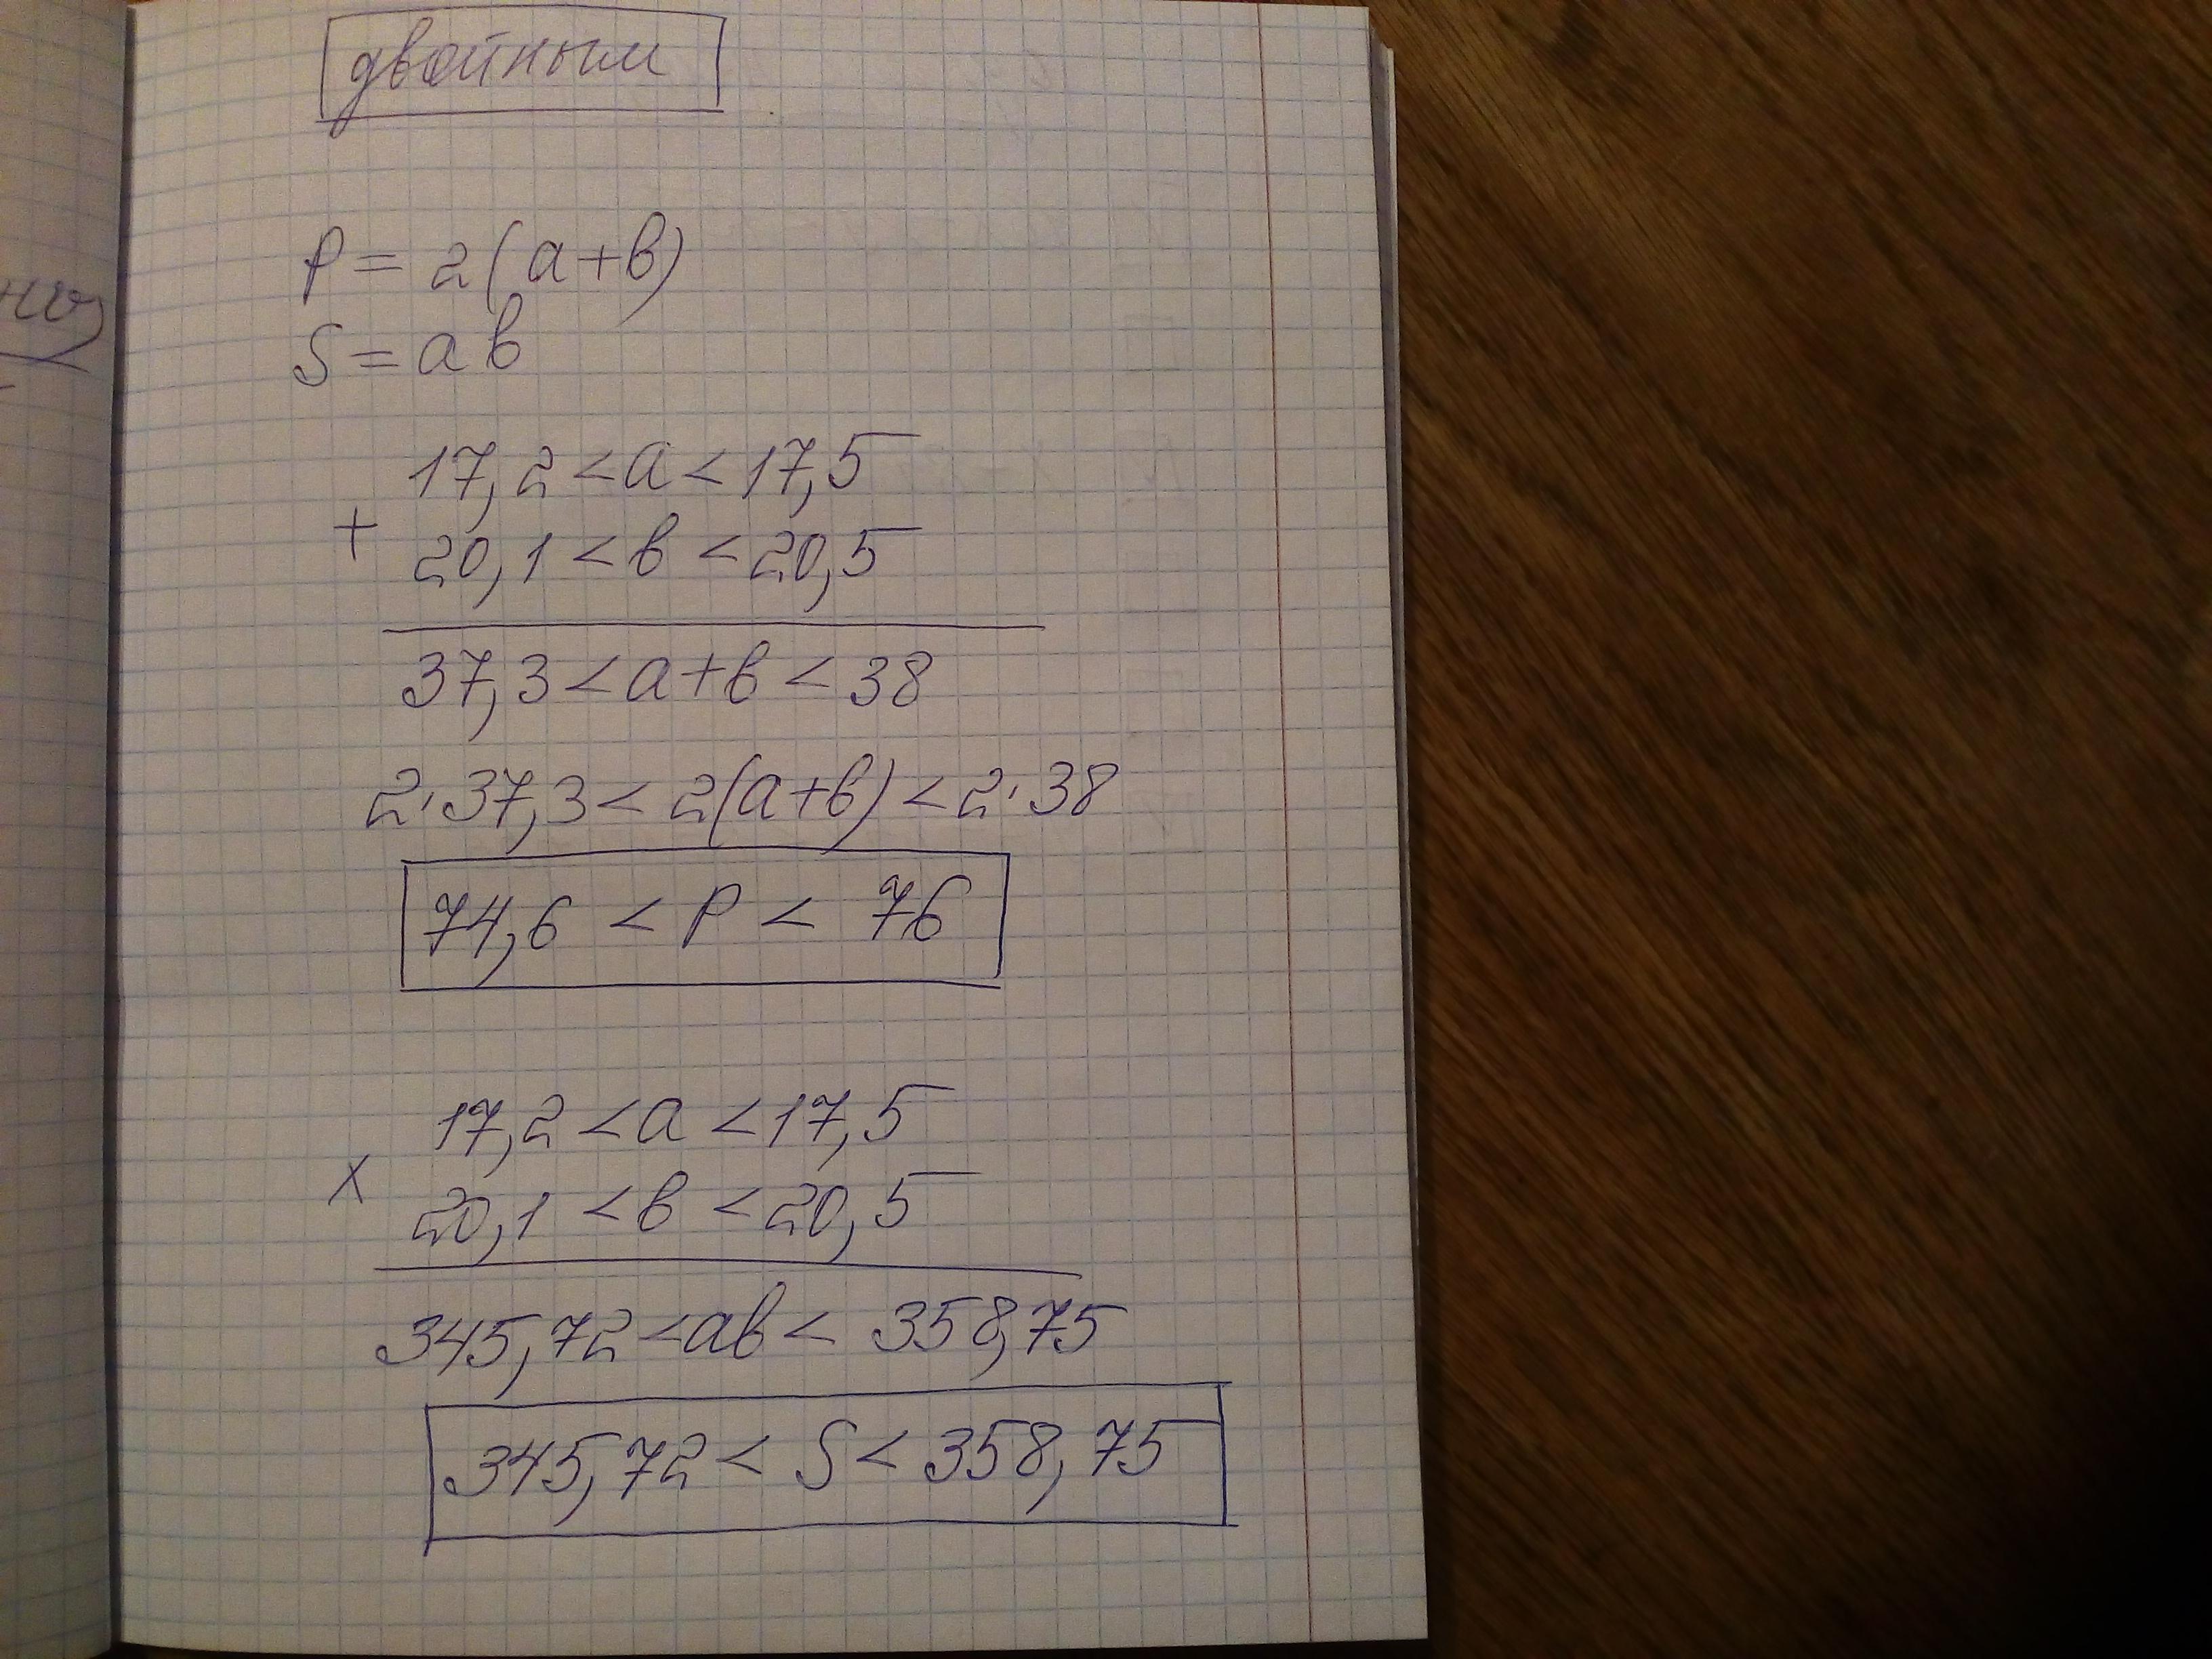 двойным
P = 2(a+b)
S = ab
17,2 < a < 17,5
+
20,1 < b < 20,5
37,3 < a+b < 38
2·37,3 < 2(a+b) < 2·38
74,6 < P < 76
17,2 < a < 17,5
×
20,1 < b < 20,5
345,72 < ab < 358,75
345,72 < S < 358,75